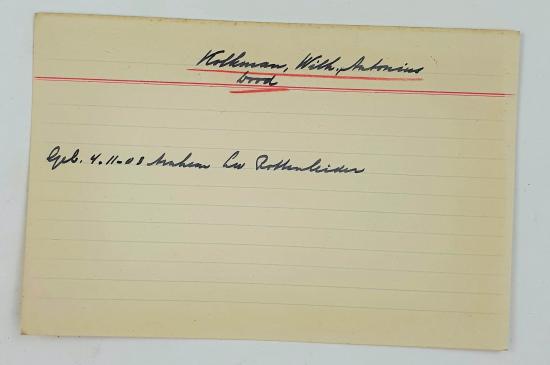 Kolkman, Wilh. Antonius
dood
Geb. 4-11-08 Arnhem Lw Rottenleider